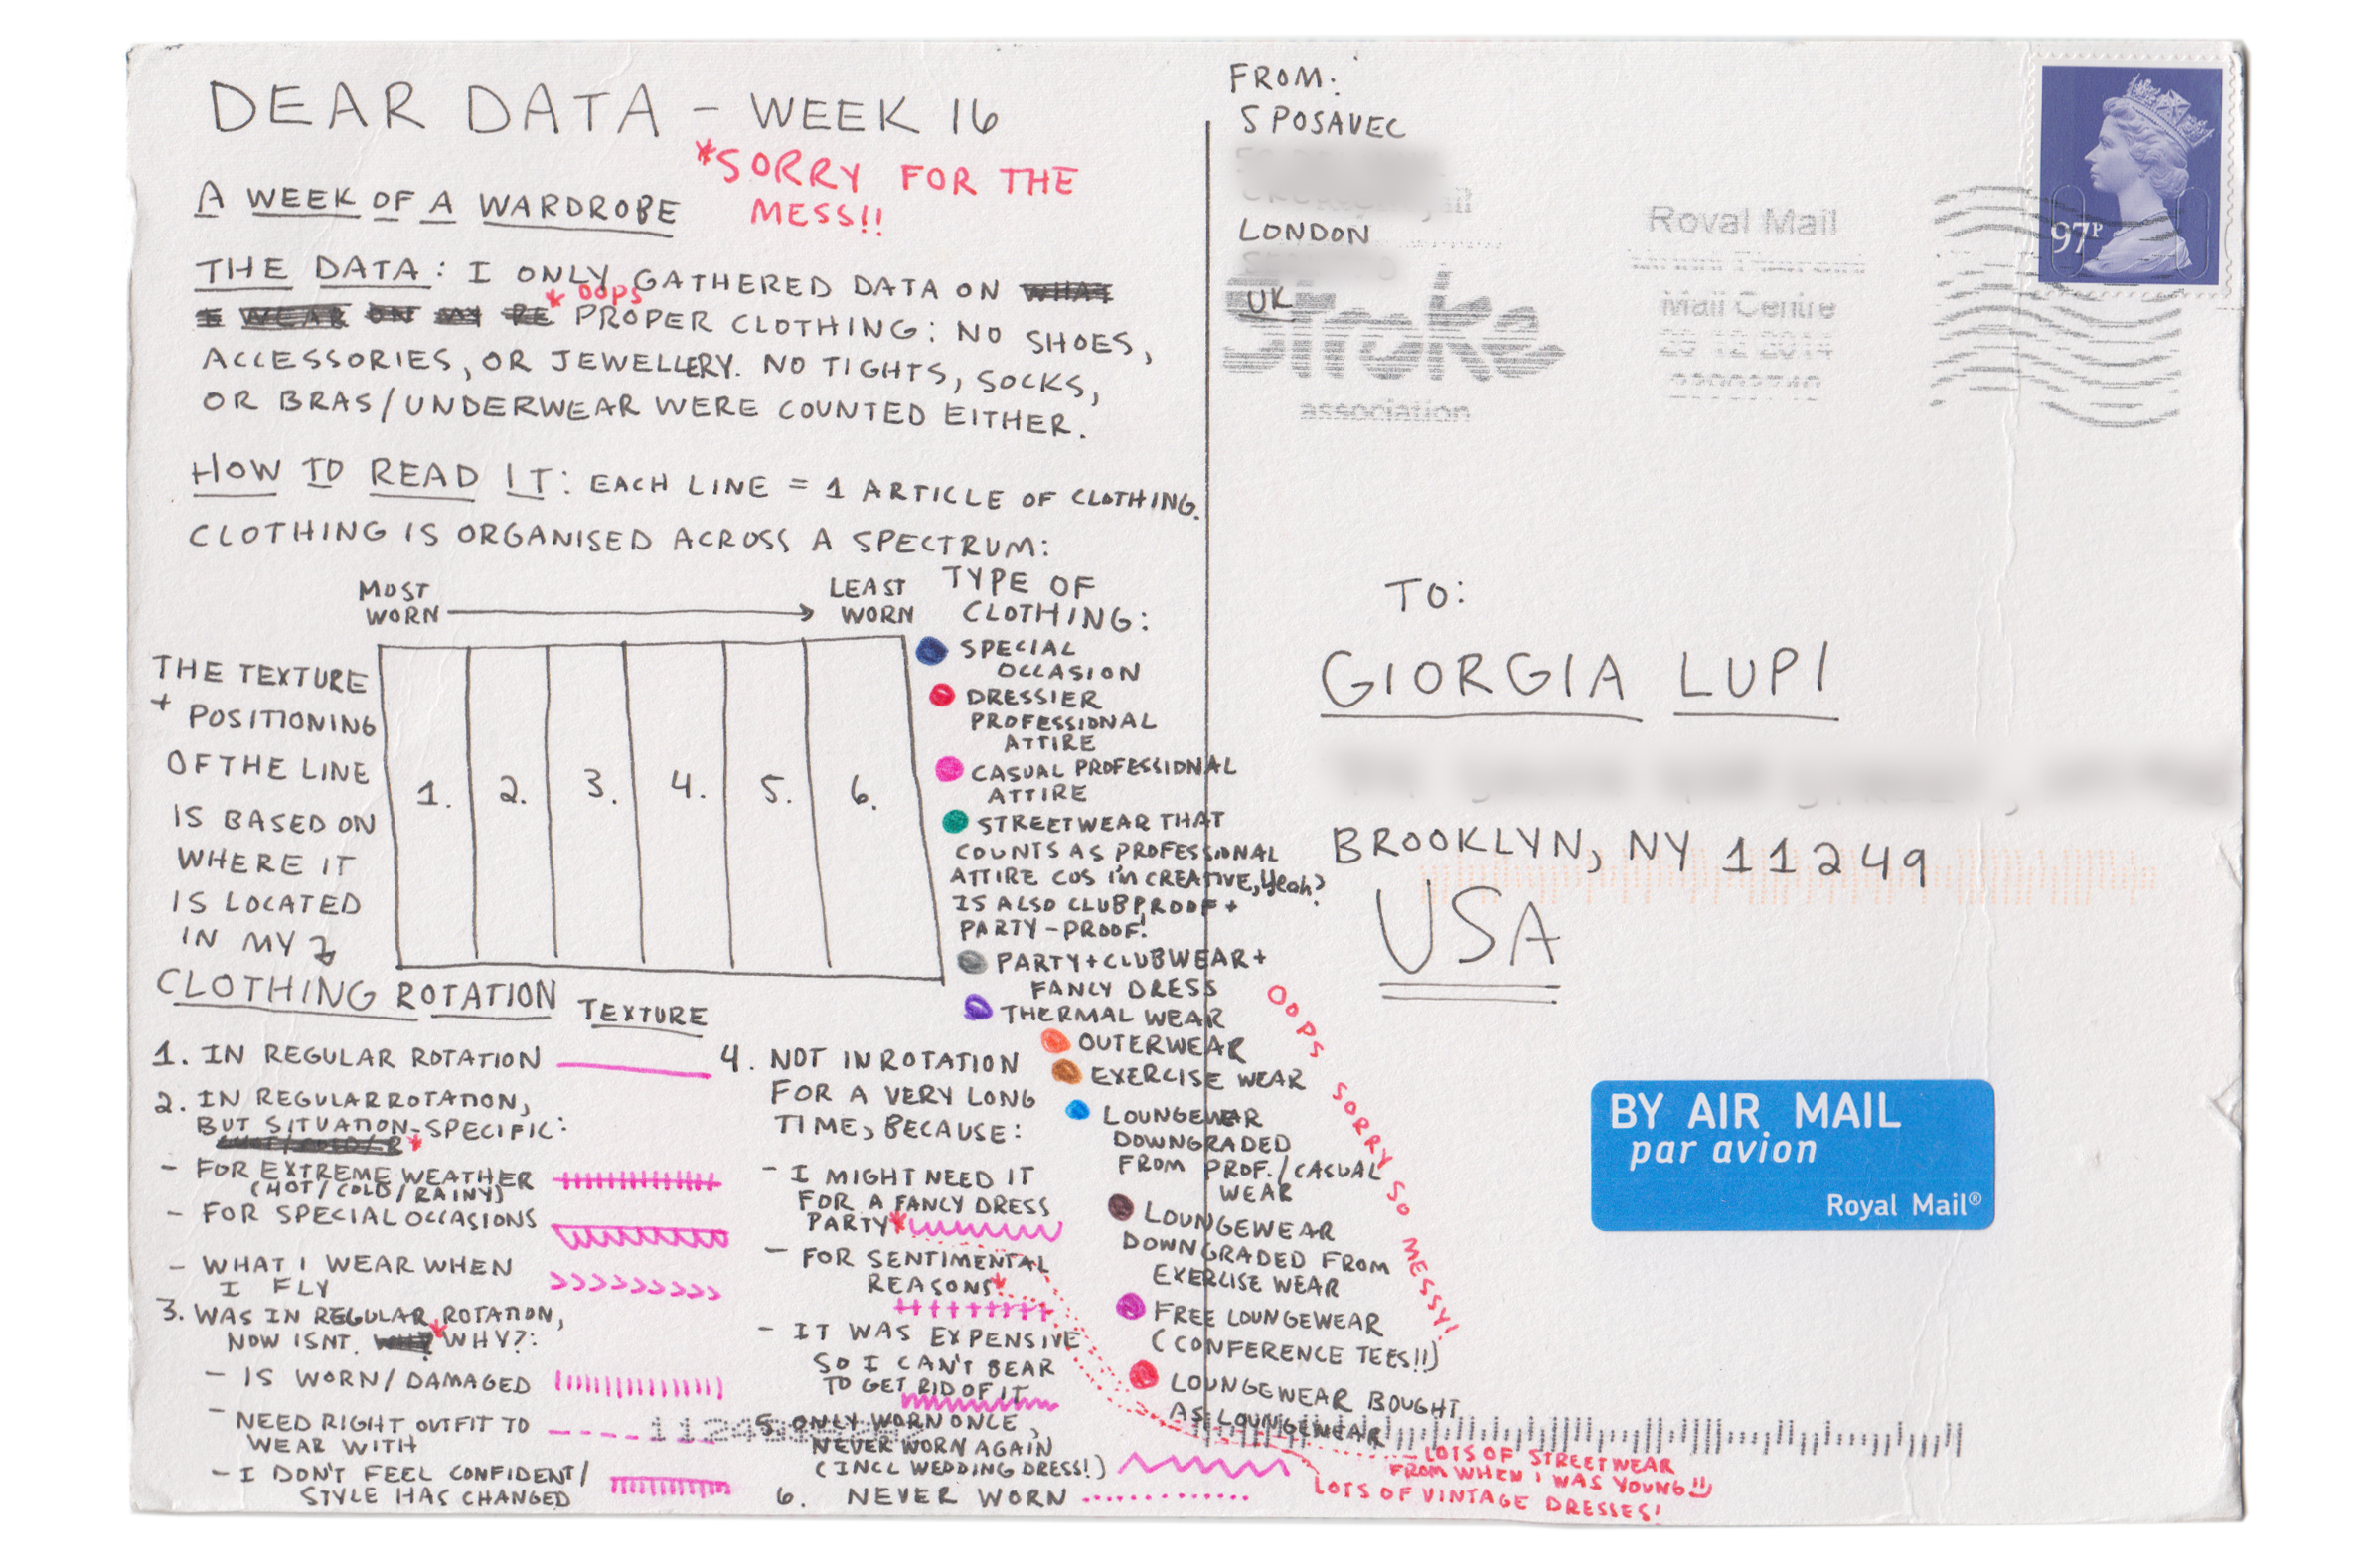 DEAR DATA - WEEK 16
*SORRY FOR THE
MESS!!
A WEEK OF A WARDROBE
THE DATA: I ONLY GATHERED DATA ON WHAT
* OOPS
I WEAR ON MY RE PROPER CLOTHING: NO SHOES,
ACCESSORIES, OR JEWELLERY. NO TIGHTS, SOCKS,
OR BRAS/UNDERWEAR WERE COUNTED EITHER.
HOW TO READ IT: EACH LINE = 1 ARTICLE OF CLOTHING.
CLOTHING IS ORGANISED ACROSS A SPECTRUM:
MOST
WORN
LEAST
WORN
THE TEXTURE
+ POSITIONING
OF THE LINE
IS BASED ON
WHERE IT
IS LOCATED
IN MY
CLOTHING ROTATION
1.
2.
3.
4.
5.
6.
TYPE OF
CLOTHING:
SPECIAL
OCCASION
DRESSIER
PROFESSIONAL
ATTIRE
CASUAL PROFESSIONAL
ATTIRE
STREETWEAR THAT
COUNTS AS PROFESSIONAL
ATTIRE COS I'M CREATIVE, yeah?
IS ALSO CLUBPROOF +
PARTY-PROOF!
PARTY+CLUBWEAR+
FANCY DRESS
THERMAL WEAR
OUTERWEAR
EXERCISE WEAR
LOUNGEWEAR
DOWNGRADED
FROM PROF./CASUAL
WEAR
LOUNGEWEAR
DOWNGRADED FROM
EXERCISE WEAR
FREE LOUNGEWEAR
(CONFERENCE TEES!!)
LOUNGEWEAR BOUGHT
AS LOUNGEWEAR
OOPS SORRY SO MESSY!
TEXTURE
1. IN REGULAR ROTATION
2. IN REGULAR ROTATION,
BUT SITUATION-SPECIFIC:
*
- FOR EXTREME WEATHER
(HOT/COLD/RAINY)
- FOR SPECIAL OCCASIONS
- WHAT I WEAR WHEN
I FLY
3. WAS IN REGULAR ROTATION,
NOW ISNT. WHY * WHY?:
- IS WORN/DAMAGED
- NEED RIGHT OUTFIT TO
WEAR WITH
- I DON'T FEEL CONFIDENT/
STYLE HAS CHANGED
4. NOT IN ROTATION
FOR A VERY LONG
TIME, BECAUSE:
- I MIGHT NEED IT
FOR A FANCY DRESS
PARTY*
- FOR SENTIMENTAL
REASONS*
- IT WAS EXPENSIVE
SO I CAN'T BEAR
TO GET RID OF IT
5. ONLY WORN ONCE,
NEVER WORN AGAIN
(INCL WEDDING DRESS!)
6. NEVER WORN
LOTS OF STREETWEAR
FROM WHEN I WAS YOUNG!!
LOTS OF VINTAGE DRESSES!
FROM:
S POSAVEC
LONDON
UK
Stroke
association
Royal Mail
Mail Centre
97P
TO:
GIORGIA LUPI
BROOKLYN, NY 11249
USA
BY AIR MAIL
par avion
Royal Mail®